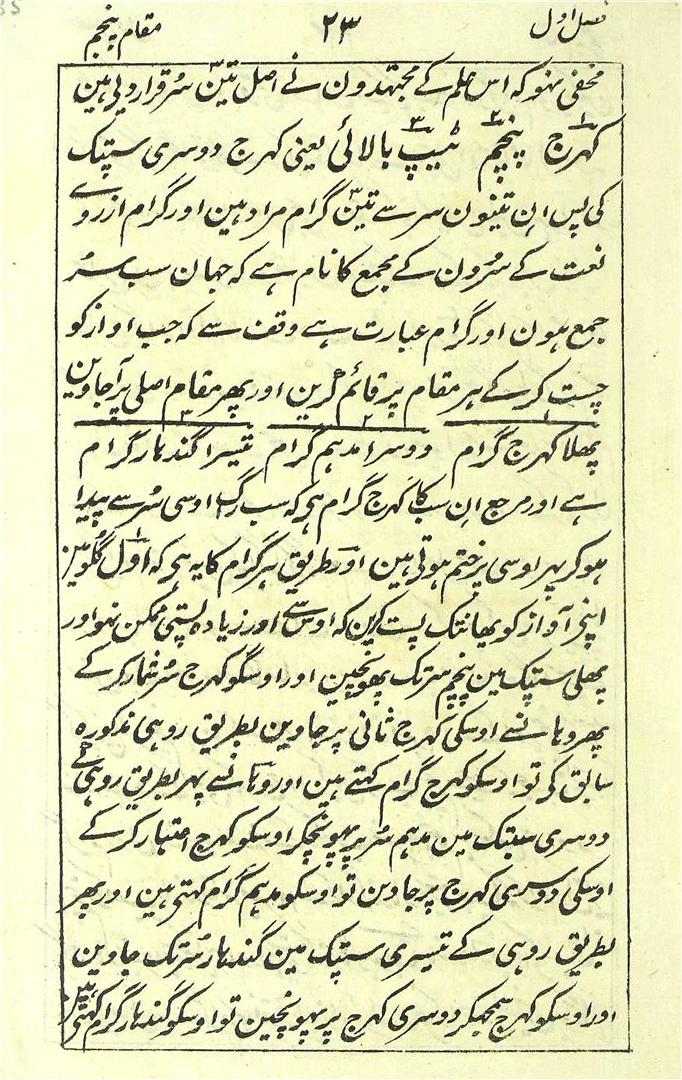 فصل اول ۲۳ مقام پنجم
مخفی نہو کہ اس علم کے مجتہدون نے اصل تین سُر قرار دیی ہین
کہرج پنچم ٹیپ بالائی یعنی کہرج دوسری سپتک
کی پس اِن تینون سر سے تین گرام مراد ہین اور گرام ازروے
لغت کے سُرون کے مجمع کا نام ہے کہ جہان سب سُر
جمع ہون اور گرام عبارت ہے وقف سے کہ جب اواز کو
چست کر کے ہر مقام پر قائم کرین اور پھر مقام اصلی پر آجاوین
پھلا کہرج گرام دوسرا مدہم گرام تیسرا گندہار گرام
ہے اور مرجع اِن سب کا کہرج گرام ہی کہ سب رگ اوسی سُر سے پیدا
ہو کر پہر اوسی پر ختم ہوتی ہین اور طریق ہر گرام کا یہ ہی کہ اوّل گلو مین
اپنی آواز کو یھانتک پست کرین کہ اوس سے اور زیادہ پستی ممکن نہو اور
پھلی سپتک مین پنچم سر تک پھونچین اور اوسکو کہرج سُر شمار کر کے
پھر وہانسے اوسکی کہرج ثانی پر جاوین بطریق روہی مذکورہ
سابق کی تو اوسکو کہرج گرام کہتے ہین اور وہانسے پہر بطریق روہی کے
دوسری سپتک مین مدہم سُر پر پہونچکر اوسکو کہرج اعتبار کر کے
اوسکی دوسری کہرج پر جاوین تو اوسکو مدہم گرام کہتی ہین اور پھر
بطریق روہی کے تیسری سپتک مین گندہار سُر تک جاوین
اور اوسکو کہرج سمجہکر دوسری کہرج پر پہونچین تو اوسکو گندہار گرام کہتی ہین